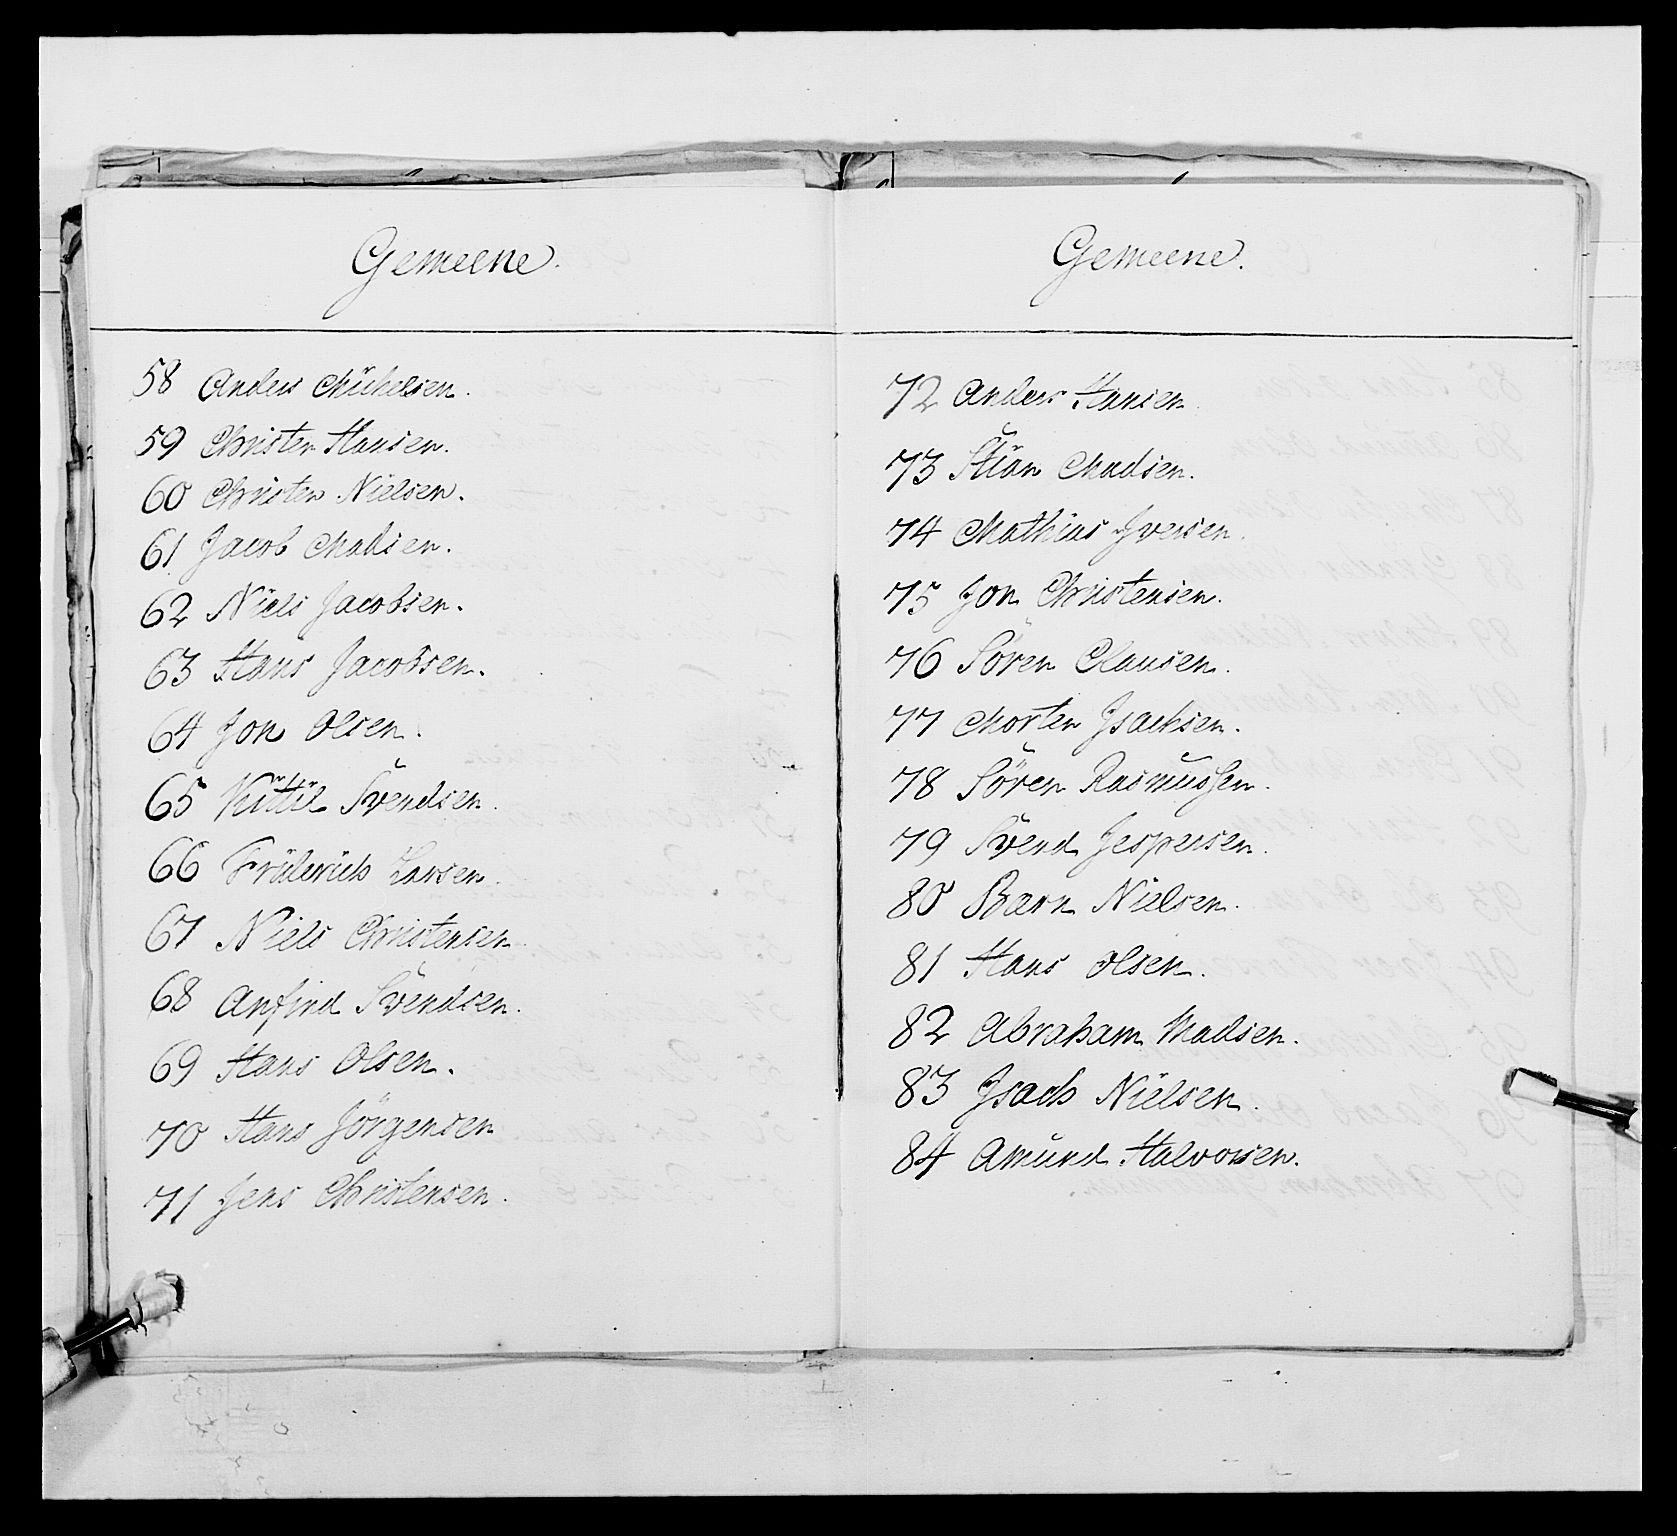 Gemeene.
58 Anders Michelsen.
59 Christen Hansen.
60 Christen Nielsen.
61 Jacob Madsen.
62 Niels Jacobsen.
63 Hans Jacobsen.
64 Jon Olsen.
65 Kittil Svendsen.
66 Friderich Larsen.
67 Niels Christensen.
68 Anfind Svendsen.
69 Hans Olsen.
70 Hans Jörgensen
71 Jens Christensen.
Gemeene.
72 Anders Hansen.
73 Stian Madsen.
74 Mathias Iversen.
75 Jon Christensen.
76 Sören Clausen.
77 Morten Isachsen.
78 Sören Rasmussen.
79 Svend Jespersen.
80 Bærn Nielsen.
81 Hans Olsen.
82 Abraham Madsen.
83 Isach Nielsen.
84 Amund Halvorsen.